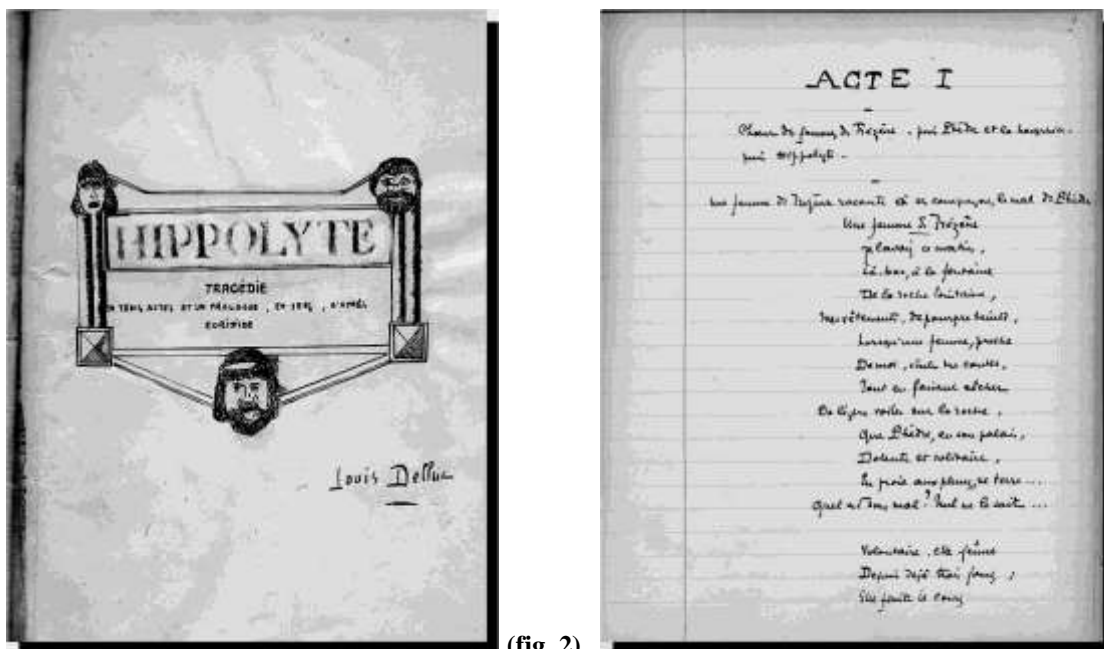 HIPPOLYTE
TRAGÉDIE
EN TROIS ACTES ET UN PROLOGUE, EN VERS, D'APRÈS
EURIPIDE
Louis Delluc
(fig. 2)
ACTE I
Chœur de femmes de Trézène - puis Phèdre et la nourrice -
puis Hippolyte -
Une femme de Trézène raconte à ses compagnes le mal de Phèdre
Une femme de Trézène
Je lavais ce matin,
Là-bas, à la fontaine
De la roche lointaine,
Mes vêtements, de pourpre teints,
Lorsqu'une femme, proche
De moi,
Tout en faisant sécher
De légers voiles sur la roche,
Que Phèdre, en son palais,
Dolente et solitaire,
En proie aux pleurs, se terre...
Quel est son mal? Nul ne le sait...
Volontaire, elle jeûne
Depuis déjà trois jours;
Elle